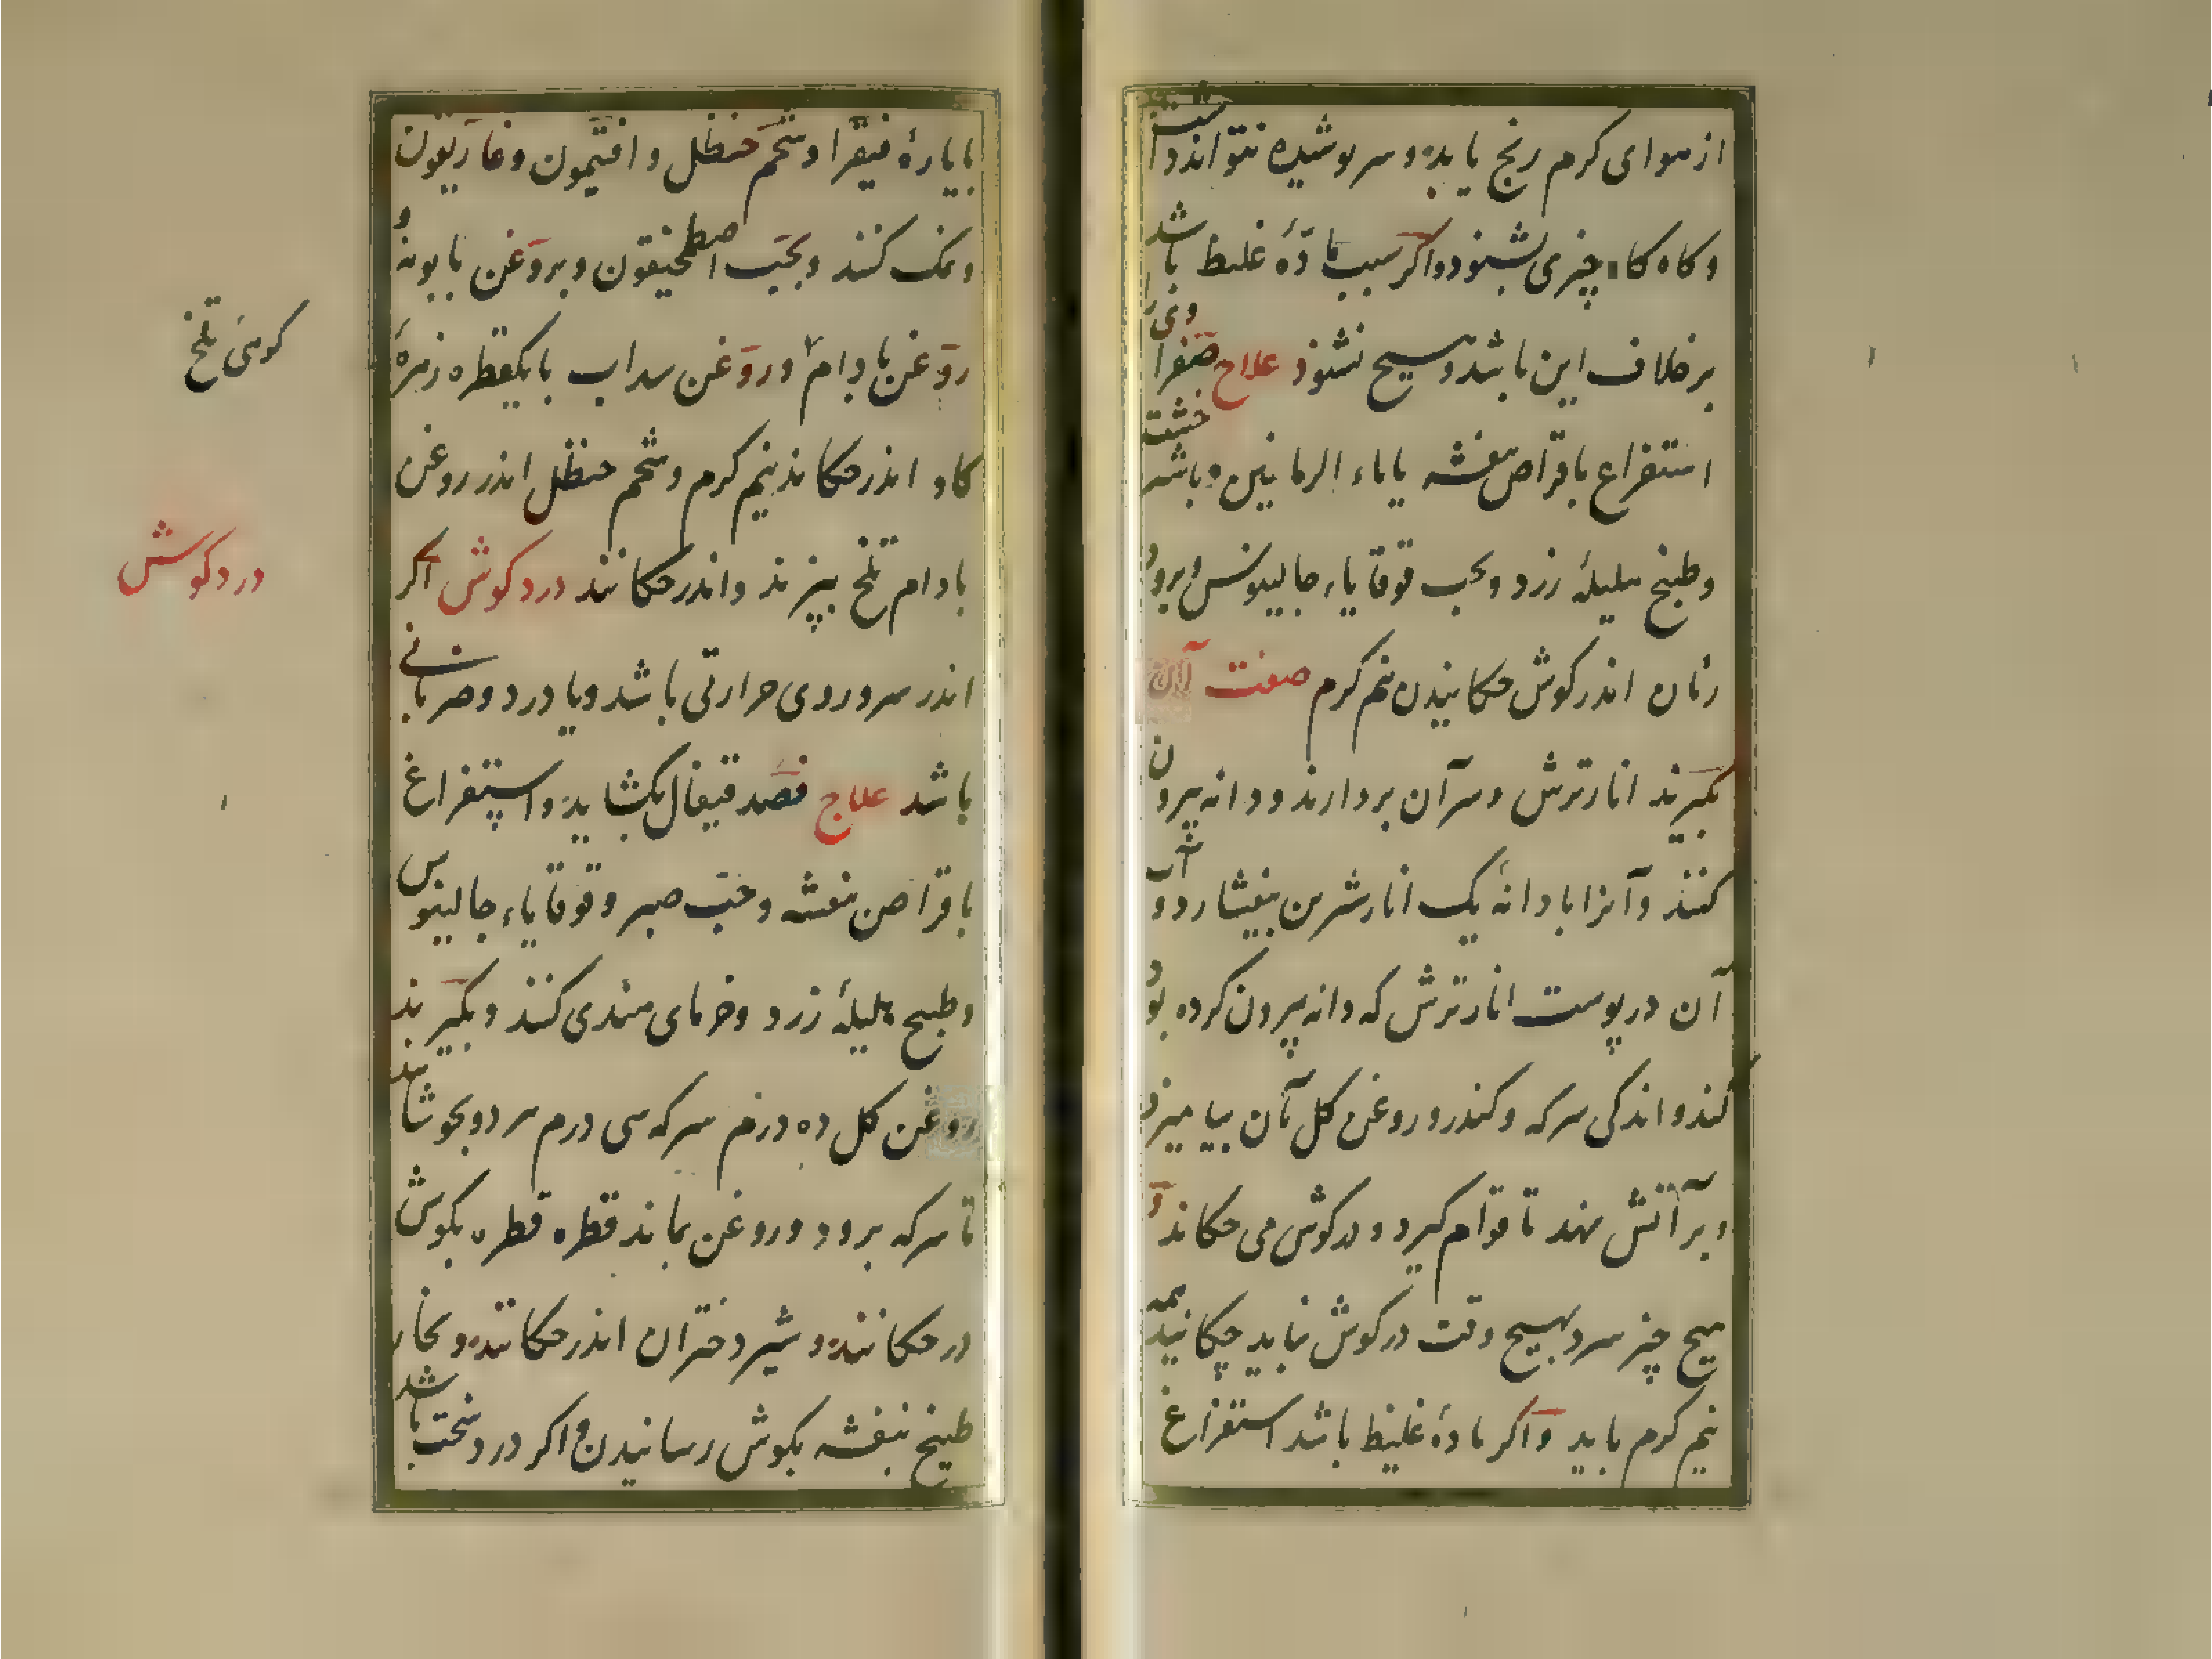 از هوای کرم رنج یابد و سر پوشیده نتواند داشت
و کاه کاه چیزی بشنود و اکر سبب مادّهٔ غلیظ باشد
بر خلاف این باشد و هیچ نشنود علاج صفراوی
استفراغ باقراص بنفشه یا ماء الرمانین و باشیرخشت
و طبیخ هلیلهٔ زرد و بحب قوقایاء جالینوس و بروب
رمان اندر کوش چکانیدن نیم کرم صفت آن
بکیرند انار ترش و سر آن بردارند و دانه بیرون
کنند و آنرا با دانهٔ یک انار شیرین بیفشارد و آب
آن در پوست انار ترش که دانه بیرون کرده بود
کند و اندکی سرکه و کندر و روغن کل بآن بیامیزد
و بر آتش نهد تا قوام کیرد و در کوش می چکاند و
هیچ چیز سرد بهیچ وقت در کوش نباید چکانید همه
نیم کرم باید و اکر مادهٔ غلیظ باشد استفراغ
بایارهٔ فیقرا و شحم حنظل و افتیمون و غاریقون
و نمک کنند و بحبّ اصطمخیقون و بروغن بابونه و
روغن بادام و روغن سداب با یکقطره زهرهٔ
کاو اندر چکانند نیم کرم و شحم حنظل اندر روغن
بادام تلخ بپزند و اندر چکانند درد کوش اکر
اندر سر و روی حرارتی باشد و یا درد و ضربانی
باشد علاج فصد قیفال بکشاید و استفراغ
باقراص بنفشه و حبّ صبر و قوقایاء جالینوس
و طبیخ هلیلهٔ زرد و خرمای هندی کنند و بکیرند
روغن کل ده درم سرکه سی درم هر دو بجوشانند
تا سرکه برود و روغن بماند قطره قطره بکوش
در چکانند و شیر دختران اندر چکانند و بخار
طبیخ بنفشه بکوش رسانیدن و اکر درد سخت باشد
کوهی تلخ
درد کوش